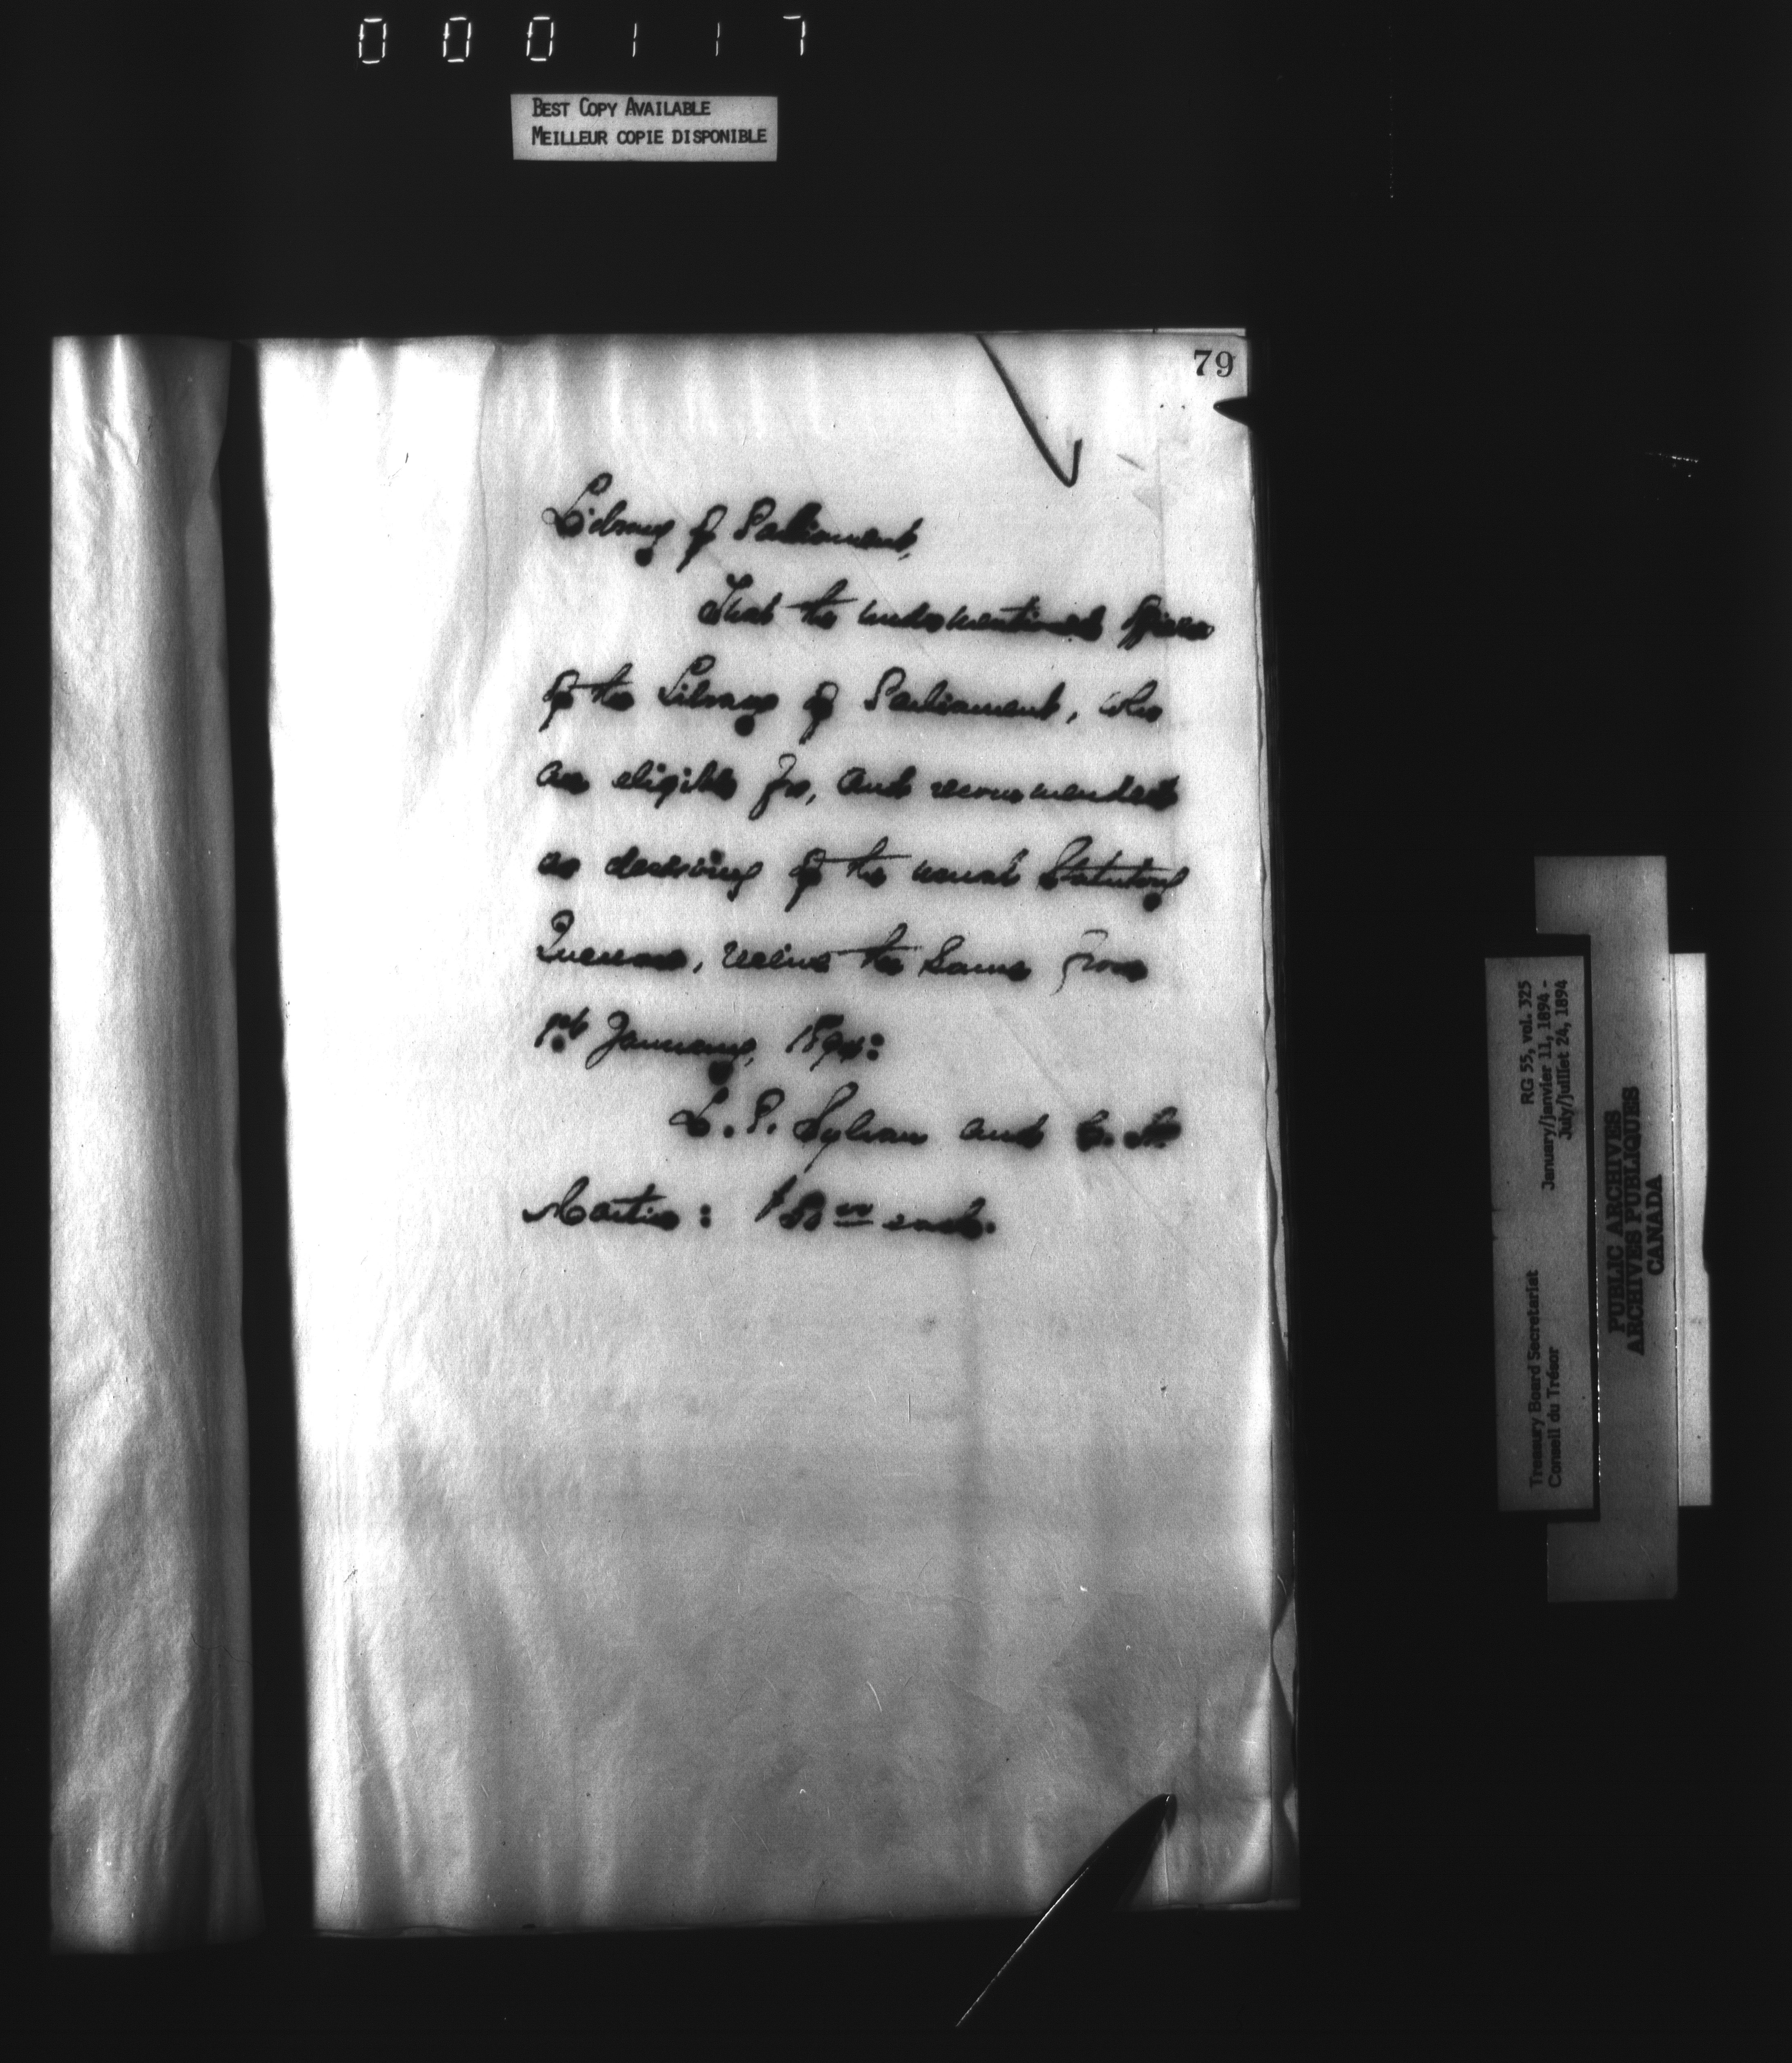 000117
BEST COPY AVAILABLE
MEILLEUR COPIE DISPONIBLE
79
Library of Parliament,
That the undermentioned Officers
of the Library of Parliament, who
are eligible for, and recommended
as deserving of the usual Statutory
Increase, receive the same from
1st January, 1894:
L. P. Sylvain and
Martin: $50 00 each.
Treasury Board Secretariat
Conseil du Trésor
RG 55, vol. 325
January/janvier 11, 1894 -
July/juillet 24, 1894
PUBLIC ARCHIVES
ARCHIVES PUBLIQUES
CANADA